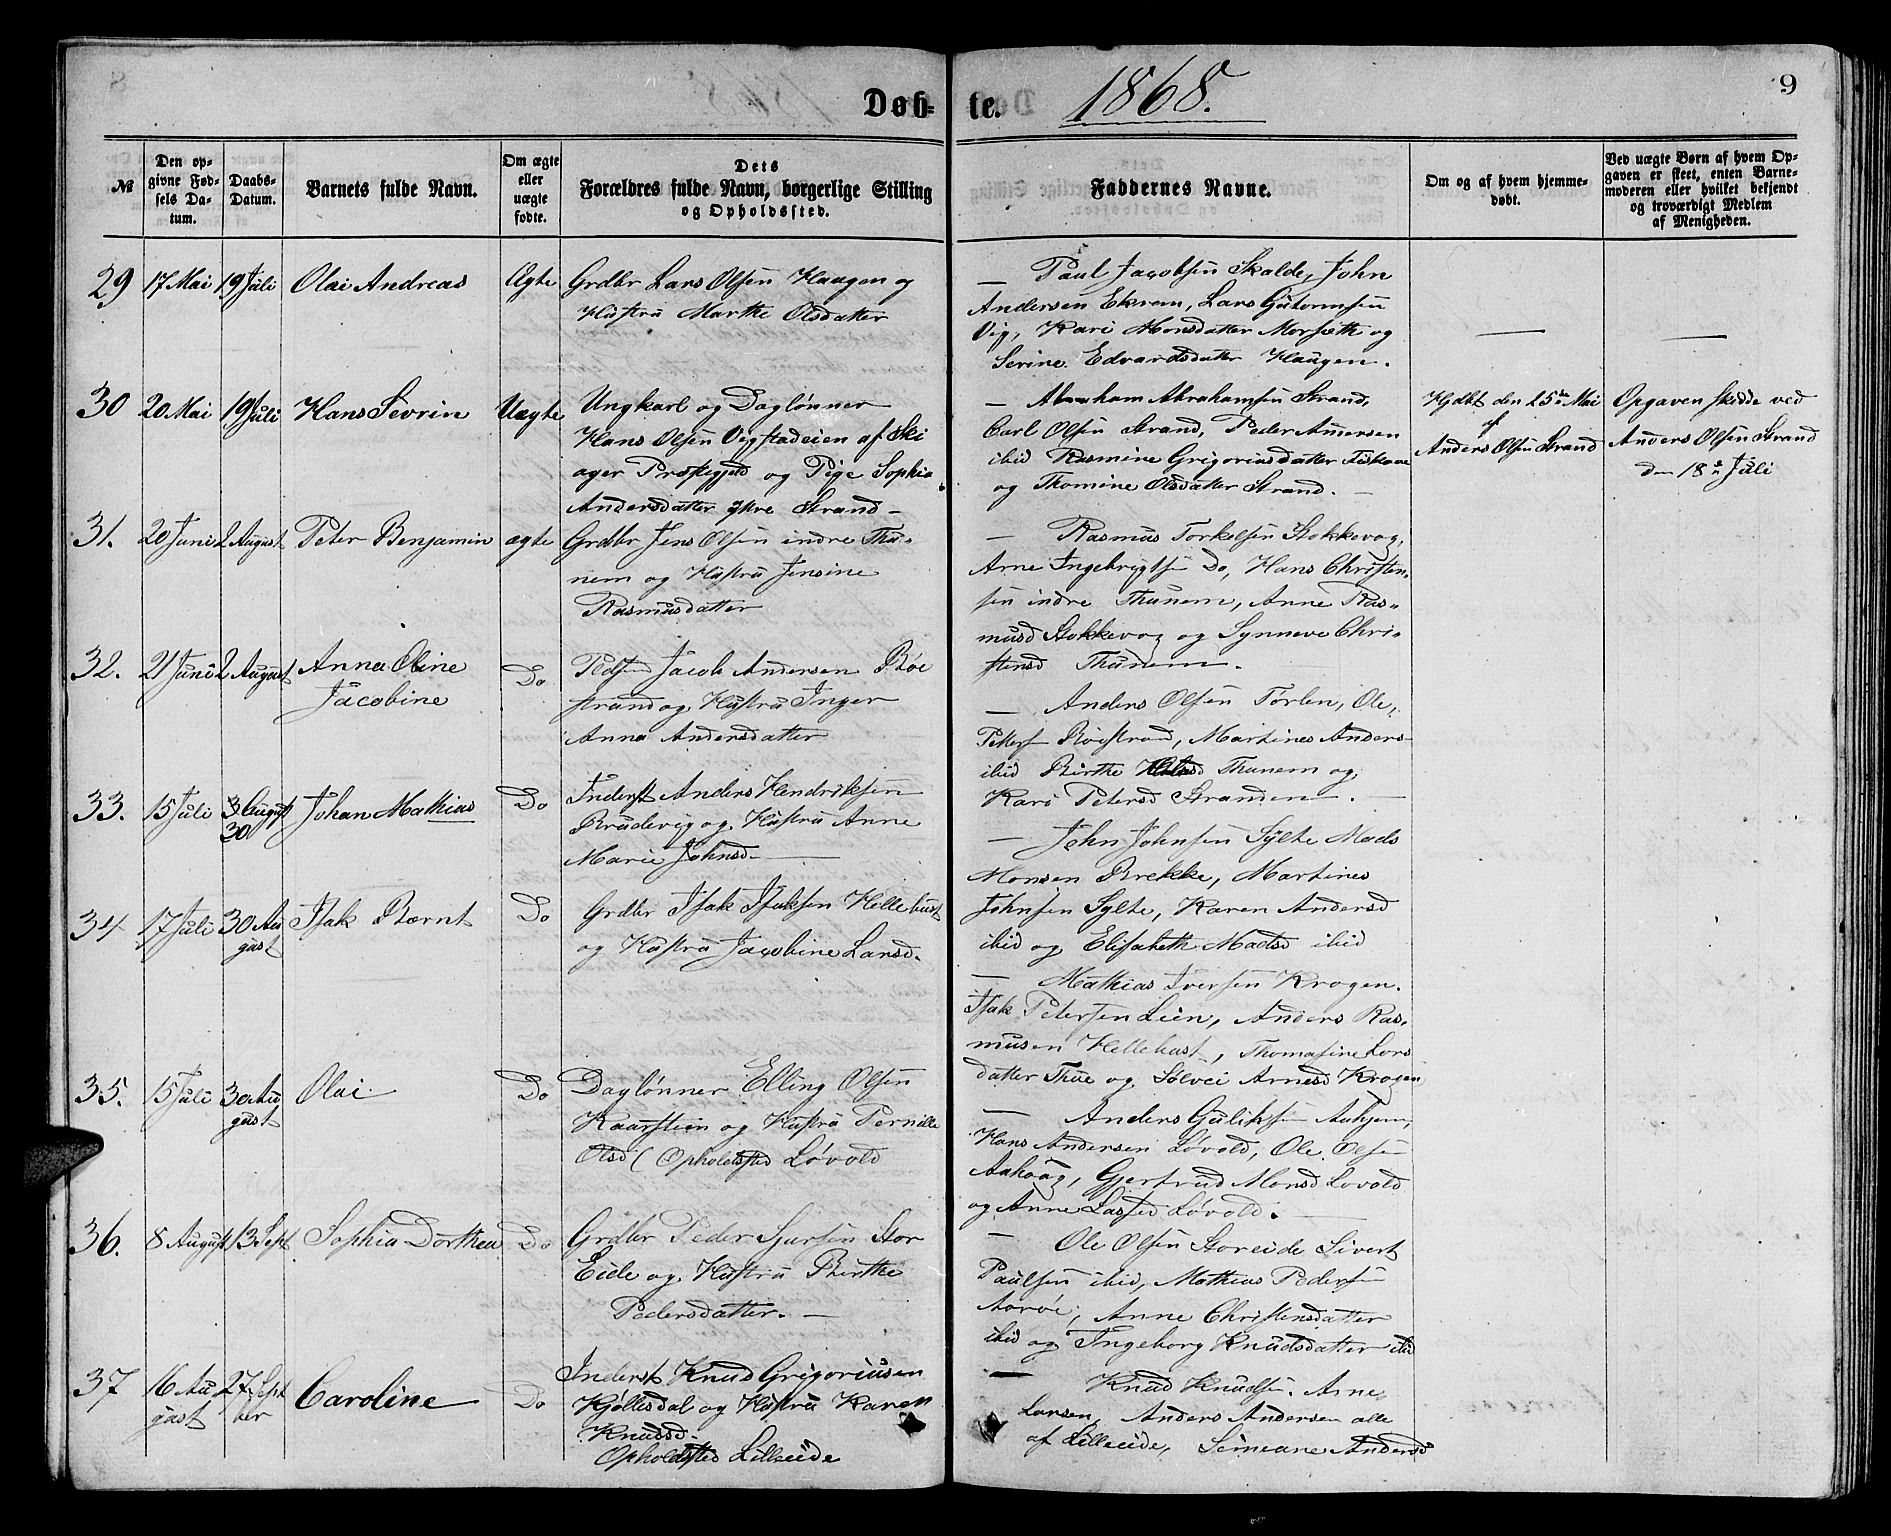 Døb-te. 1868. 9
№
Den opgivne Fødsels Datum.
Daabs-Datum.
Barnets fulde Navn.
Om ægte eller uægte fødte.
Dets Forældres fulde Navn, borgerlige Stilling og Opholdssted.
Faddernes Navne.
Om og af hvem hjemmedøbt.
Ved uægte Børn af hvem Opgaven er skeet, enten Barnemoderen eller hvilket bekjendt og troværdigt Medlem af Menigheden.
29 17 Mai 19 Juli Olai Andreas Ægte
Grdbr Lars Olsen Haagen og
Hustru Marthe Olsdatter
— Paul Jacobsen Skalde, John
Andersen Ekrem, Lars Gutormsen
Vig, Kari Monsdatter Morseth og
Serine Edvardsdatter Haugen.
30 20 Mai 19 Juli Hans Sevrin Uægte
Ungkarl og Daglønner
Hans Olsen Vigstadeien af Ski
ager Prestegjeld og Pige Sophie
Andersdatter ytre Strand —
— Abraham Abrahamsen Strand,
Carl Olsen Strand, Peder Andersen
ibid Rasmine Grigoriusdatter
og Thomine Olsdatter Strand. —
Hjdbt den 25de Mai
af
Anders Olsen Strand
Opgaven skedde ved
Anders Olsen Strand
den 18de Juli
31. 20 Juni 2 August Peter Benjamin ægte
Grdbr Jens Olsen indre Thu-
nem og Hustru Jensine
Rasmusdatter
— Rasmus Torkelsen Stokkevog,
Arne Ingebrigts Do, Hans Christen-
sen indre Thunem, Anne Ras-
musd Stokkevog og Synneve Chri-
stensd Thunem.
32. 21 Juni 2 August Anna Oline
Jacobine Do
Jacob Andersen Røe
strand og Hustru Inger
Anna Andersdatter
— Anders Olsen Tørlen, Ole
Peters Røestrand, Martines Anders
ibid Birthe Thunem og
Kari Petersd Stranden. —
33. 15 Juli 30 August Johan Mathias Do
Inderst Anders Hendriksen
Brudevig og Hustru Anne
Marie Johnsd —
— John Johnsen Sylte Mads
Monsen Brekke, Martines
Johnsen Sylte, Karen Andersd
ibid og Elisabeth Madtsd ibid
34 17 Juli 30 Au
gust Isak Bernt Do
Grdbr Isak Isaksen Hellebust
og Hustru Jacobine Larsd.
— Mathias Iversen Krogen.
Isak Petersen Lien, Anders Ras-
musen Hellebust, Thomasine Lars
datter Thue og Sølvei Arnesd Krogen
35. 15 Juli 30 Au
gust Olai Do
Daglønner Elling Olsen
Kaarstein og Hustru Pernille
Olsd (Opholdssted Løvold
— Anders Guliks Aahjem,
Hans Andersen Løvold, Ole Olsen
Aahaag, Gjertrud Monsd Løvold
og Anne Lassed Løvold. —
36. 8 August 13 Sept Sophia Dorthea Do
Grdbr Peder Sjursen Stor
Eide og Hustru Birthe
Pedersdatter. —
— Ole Olsen Storeide Sivert
Paulsen ibid, Mathias Peders
Aarøe, Anne Christensdatter
ibid og Ingeborg Knudsdatter ibid
37 16 Au
gust 27 Sept
ber Caroline Do
Inderst Knud Grigoriusen
Kjøllesdal og Hustru Karen
Knudsd.
Opholdssted Lilleeide
— Knud Knudsen. Arne
Larsen, Anders Andersen alle
af Lilleeide, Simeane Andersd